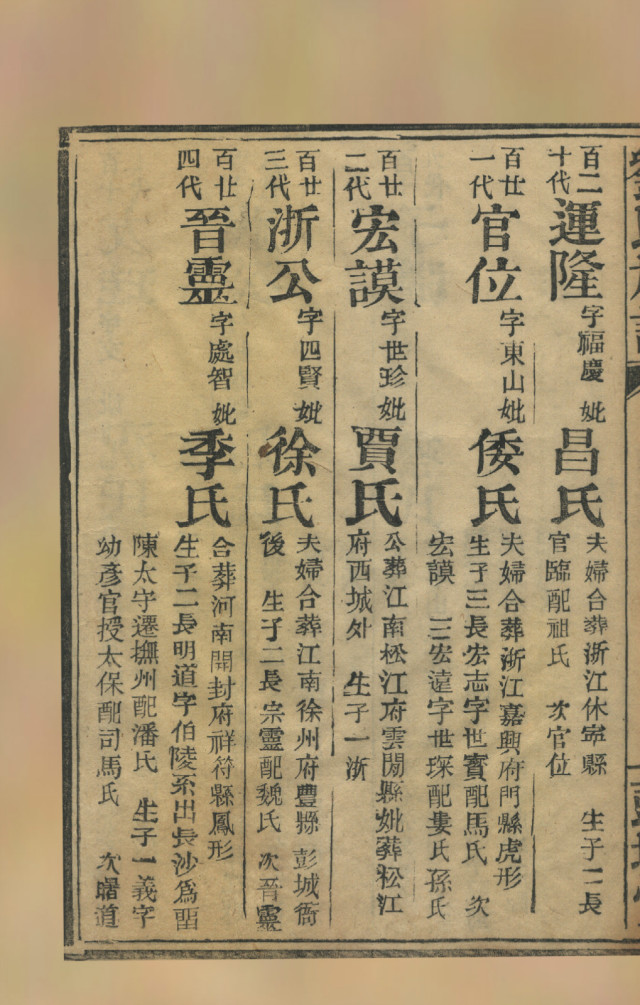 百二十代運隆字福慶 妣昌氏夫婦合葬浙江休寧縣 生子二長
官臨配祖氏 次官位
百廿一代官位字東山妣倭氏夫婦合葬浙江嘉興府門縣虎形
生子三長宏志字世寶配馬氏 次
宏謨 三宏遠字世琛配婁氏孫氏
百廿二代宏謨字世珍妣賈氏公葬江南松江府雲閒縣妣葬松江
府西城外 生子一浙
百廿三代浙公字四賢妣徐氏夫婦合葬江南徐州府豐縣彭城衙
後 生子二長宗靈配魏氏 次晉靈
百廿四代晉靈字處智妣季氏合葬河南開封府祥符縣鳳形
生子二長明道字伯陵系出長沙爲
陳太守遷撫州配潘氏 生子一義字
幼彥官授太保配司馬氏 次曙道